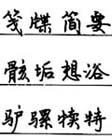 笺牒简要
骸垢想浴
驴骡犊特